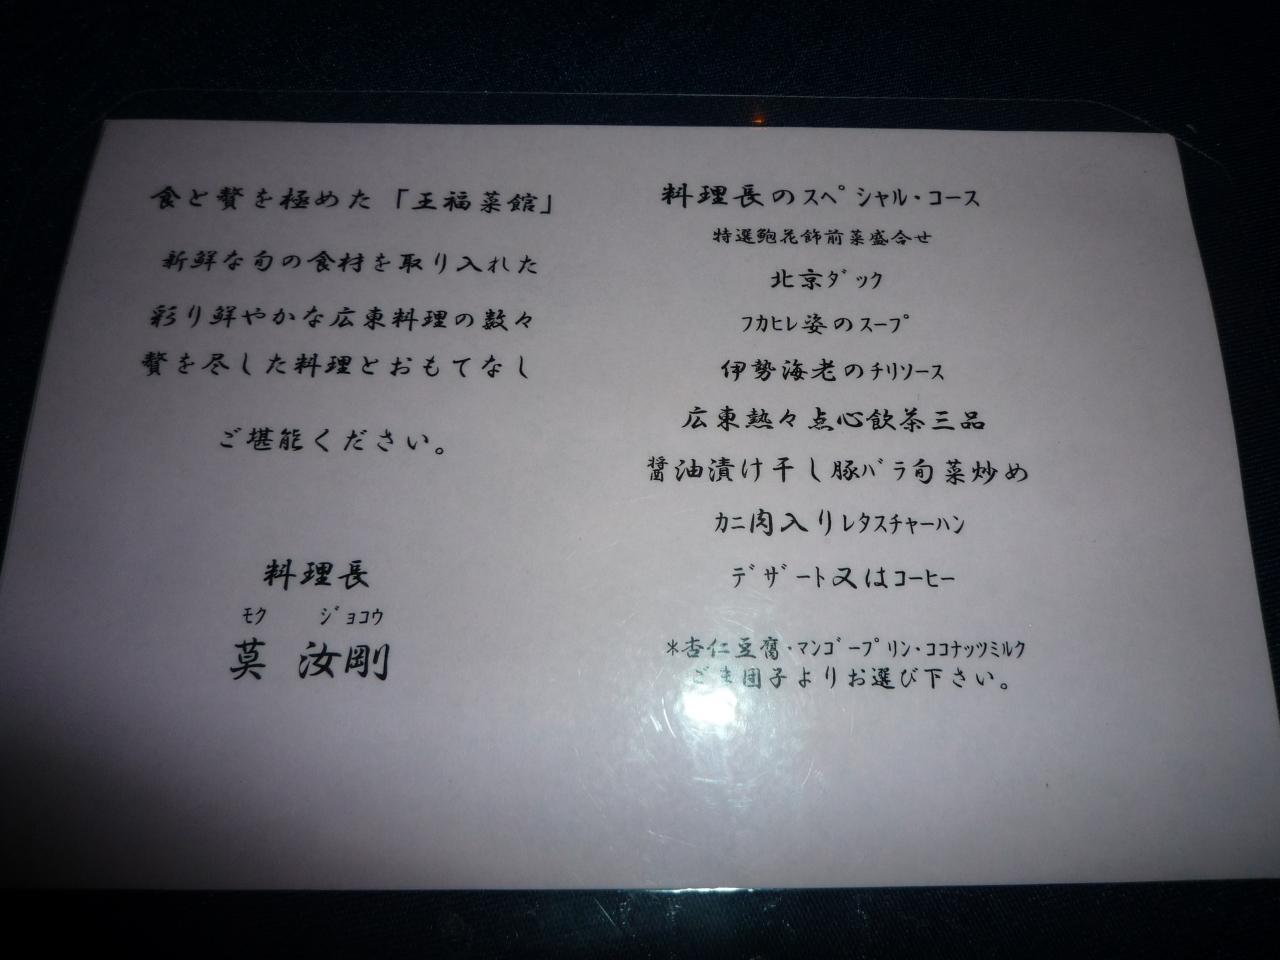 食と贅を極めた「王福菜館」
新鮮な旬の食材を取り入れた
彩り鮮やかな広東料理の数々
贅を尽した料理とおもてなし
ご堪能ください。
料理長
モク ジョコウ
莫 汝剛
料理長のスペシャル・コース
特選鮑花飾前菜盛合せ
北京ダック
フカヒレ姿のスープ
伊勢海老のチリソース
広東熱々点心飲茶三品
醤油漬け干し豚バラ旬菜炒め
カニ肉入りレタスチャーハン
デザート又はコーヒー
*杏仁豆腐・マンゴープリン・ココナッツミルク
ごま団子よりお選び下さい。